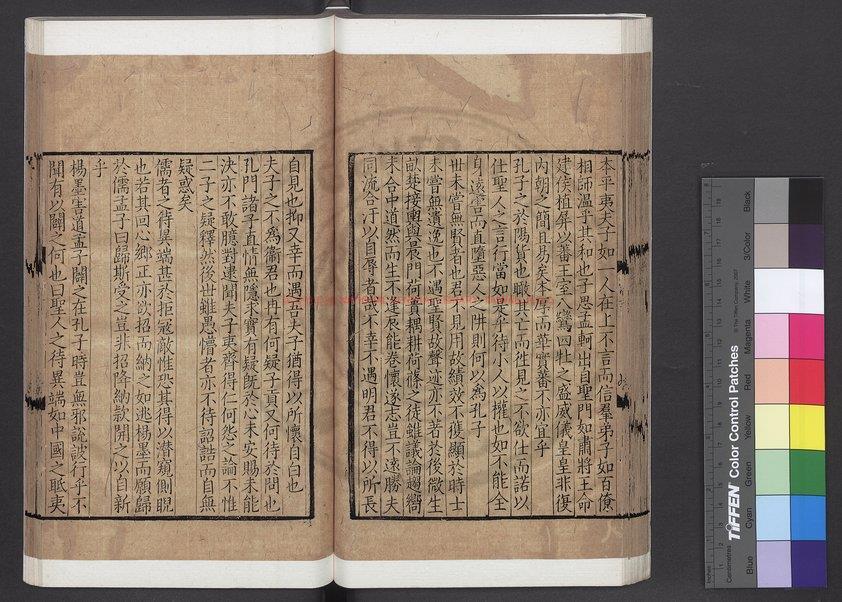 本平夷夫子如一人在上不言而信羣弟子如百僚
相師溫乎其和也子思孟軻出自聖門如肅將王命
建侯植屏以蕃王室八鸞四牡之盛威儀皇皇非復
內朝之簡且易矣本厚而華實蕃不亦宜乎
孔子之於陽貨也瞰其亡而徃見之不欲仕而諾以
仕聖人之言行當如是乎待小人以權也如不能全
身遠害而直墮惡人之阱則何以為孔子
世未嘗無賢者也君不見用故績效不獲顯於時士
未嘗無遺逸也不遇聖賢故聲迹亦不若於後微生
畝楚接輿與晨門荷蕢耦耕荷蓧之徒雖議論趨嚮
未合中道然而生不逢辰能卷懷遂志豈不遠勝夫
同流合汙以自辱者哉不幸不遇明君不得以所長
自見也抑又幸而遇吾夫子猶得以所懷自白也
夫子之不為衞君也冉有何疑子貢又何待於問也
孔門諸子直情無隱求實有疑旣於心未安賜未能
決亦不敢臆對逮聞夫子夷齊得仁何怨之論不惟
二子之疑釋然後世雖愚懵者亦不待詔誥而自無
疑惑矣
儒者之待異端甚於拒寇敵惟恐其得以潛窺側睨
也若其回心鄉正亦欲招而納之如逃楊墨而願歸
於儒孟子曰歸斯受之豈非招降納款開之以自新
乎
楊墨害道孟子闢之在孔子時豈無邪說詖行乎不
聞有以闢之何也曰聖人之待異端如中國之眡夷
TIFFEN Color Control Patches
© The Tiffen Company, 2007
Centimetres
Inches
Blue
Cyan
Green
Yellow
Red
Magenta
White
3/Color
Black